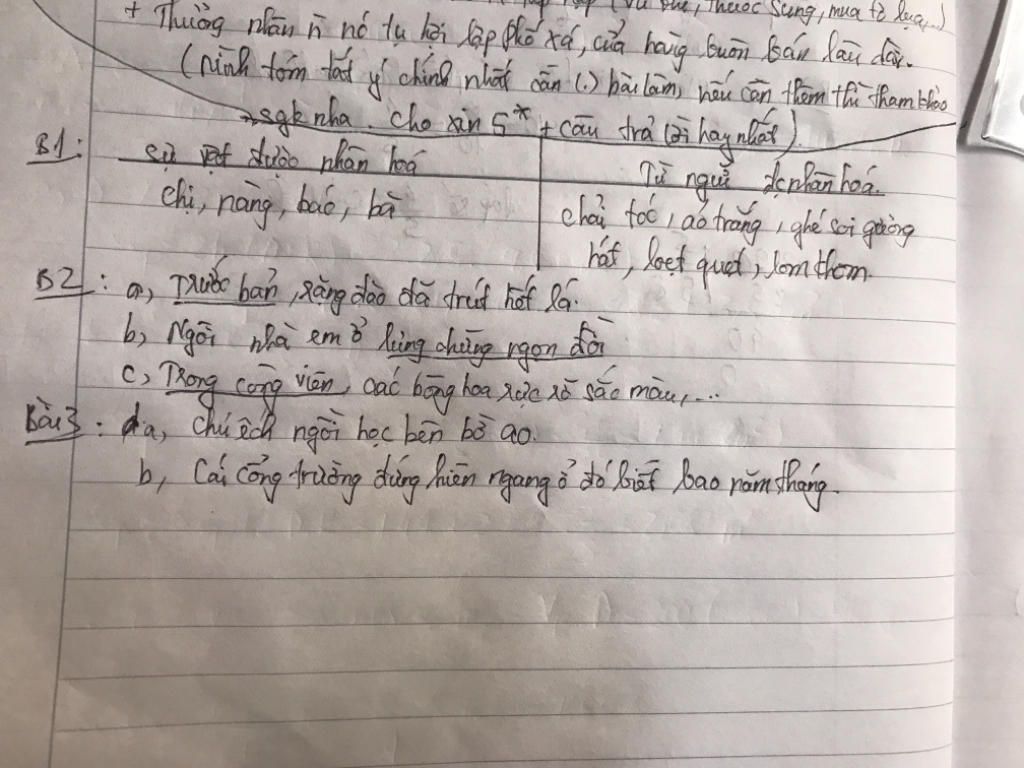 (vũ khí, thuốc súng, mua tơ lụa,..)
+ Thưởng nhân n nó tụ hội lập phố xá, cửa hàng buôn bán lâu dài.
(mình tóm tắt ý chính nhất cần (.) bài làm, nếu cần thêm thì tham khảo
→ sgk nha. Cho xin 5* + câu trả lời hay nhất).
B1: Sự vật được nhân hoá | Từ ngữ đc nhân hoá.
Chị, nàng, bác, bà | chải tóc, áo trắng, ghé soi gương
hát, loẹt quẹt, lom thom.
B2: a, Trước bản, rặng đào đã trút hết lá.
b, Ngôi nhà em ở lưng chừng ngọn đồi
c, Trong công viên, các bông hoa rực rỡ sắc màu,...
Bài 3: a, Chú ếch ngồi học bên bờ ao.
b, Cái cổng trường đứng hiên ngang ở đó biết bao năm tháng.